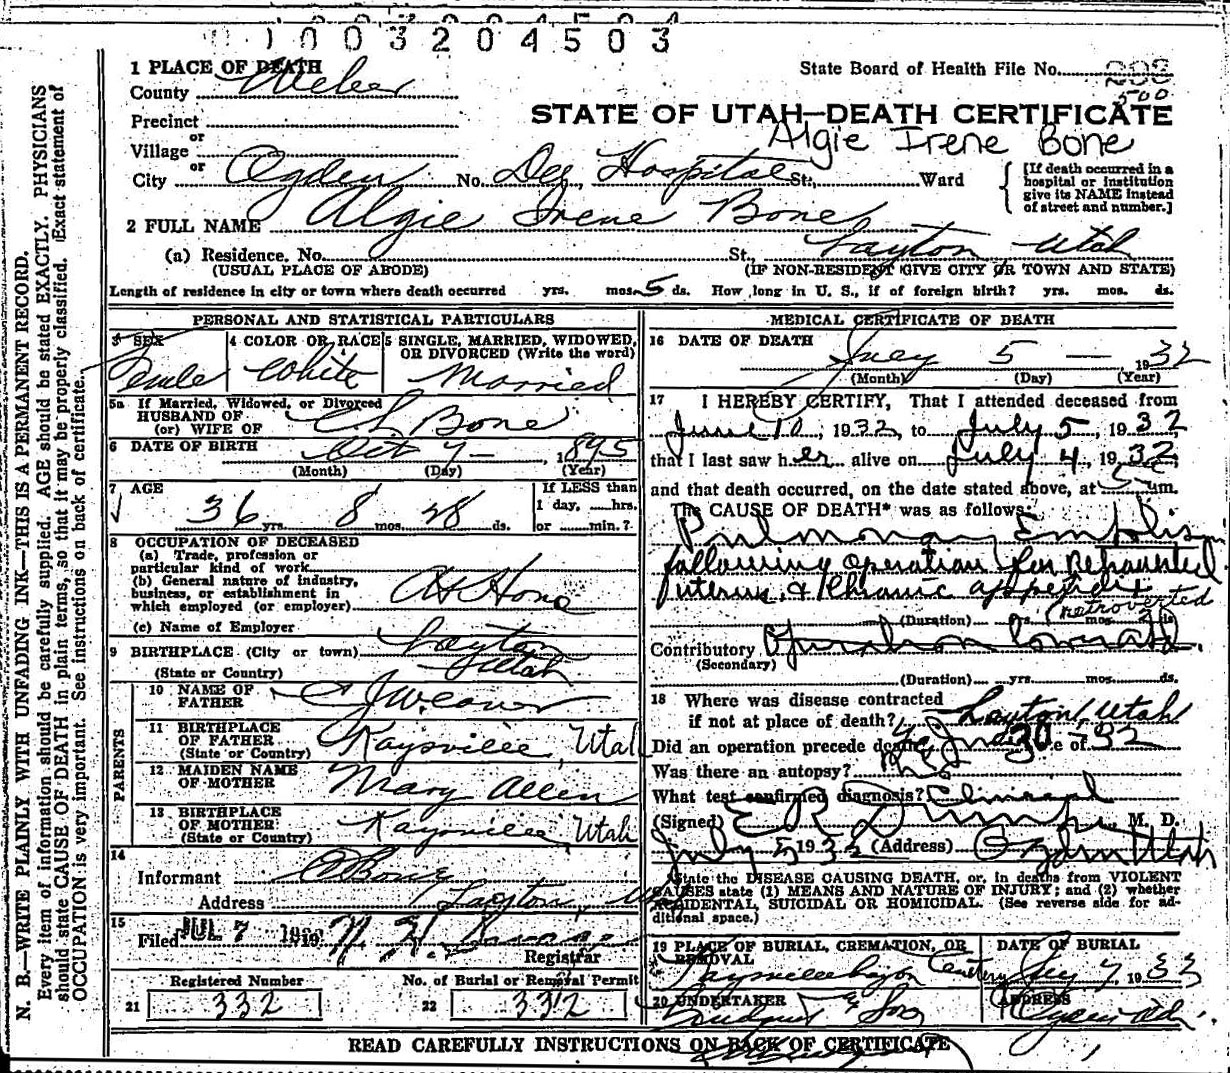 1003204503
1 PLACE OF DEATH
State Board of Health File No.
County Weber
500
STATE OF UTAH—DEATH CERTIFICATE
Precinct
Algie Irene Bone
or
Village
or
City Ogden No. Dee Hospital St., Ward
[If death occurred in a hospital or institution give its NAME instead of street and number.]
2 FULL NAME Algie Irene Bone
(a) Residence. No. St., Layton Utah
(USUAL PLACE OF ABODE) (IF NON-RESIDENT GIVE CITY OR TOWN AND STATE)
Length of residence in city or town where death occurred yrs. mos. 5 ds. How long in U. S., if of foreign birth? yrs. mos. ds.
PERSONAL AND STATISTICAL PARTICULARS
3 SEX 4 COLOR OR RACE 5 SINGLE, MARRIED, WIDOWED, OR DIVORCED (Write the word)
White Married
5a If Married, Widowed, or Divorced
HUSBAND OF
(or) WIFE OF C L Bone
6 DATE OF BIRTH Oct 7 1895
(Month) (Day) (Year)
7 AGE If LESS than
1 day, hrs.
36 yrs. 8 mos. 28 ds. or min.?
8 OCCUPATION OF DECEASED
(a) Trade, profession or
particular kind of work
(b) General nature of industry,
business, or establishment in
which employed (or employer) At Home
(c) Name of Employer
9 BIRTHPLACE (City or town) Layton
(State or Country) Utah
PARENTS
10 NAME OF
FATHER Weaver
11 BIRTHPLACE
OF FATHER
(State or Country) Kaysville, Utah
12 MAIDEN NAME
OF MOTHER Mary Allen
13 BIRTHPLACE
OF MOTHER
(State or Country) Kaysville Utah
14
Informant Bone
Address Layton,
15
Filed JUL 7 19
Registrar
Registered Number No. of Burial or Removal Permit
21 332 22 332
MEDICAL CERTIFICATE OF DEATH
16 DATE OF DEATH
July 5 — 1932
(Month) (Day) (Year)
17 I HEREBY CERTIFY, That I attended deceased from
June 10, 1932, to July 5, 1932
that I last saw her alive on July 4, 1932,
and that death occurred, on the date stated above, at 5 m.
The CAUSE OF DEATH* was as follows:
Pulmonary Embolism
following operation for Retroverted
Uterus, & Chronic appendix
(retroverted
(Duration) yrs. mos. ds.
Contributory Operation
(Secondary)
(Duration) yrs. mos. ds.
18 Where was disease contracted
if not at place of death? Layton, Utah
Did an operation precede death? Yes Date of June 30 - 32
Was there an autopsy? No
What test confirmed diagnosis? Clinical
(Signed) E R M. D.
July 5 1932 (Address) Ogden Utah
State the DISEASE CAUSING DEATH, or, in deaths from VIOLENT
CAUSES state (1) MEANS AND NATURE OF INJURY; and (2) whether
ACCIDENTAL, SUICIDAL OR HOMICIDAL. (See reverse side for ad-
ditional space.)
19 PLACE OF BURIAL, CREMATION, OR REMOVAL DATE OF BURIAL
July 7 1933
20 UNDERTAKER ADDRESS
& Son
READ CAREFULLY INSTRUCTIONS ON BACK OF CERTIFICATE
N. B.—WRITE PLAINLY WITH UNFADING INK—THIS IS A PERMANENT RECORD.
Every item of information should be carefully supplied. AGE should be stated EXACTLY. PHYSICIANS
should state CAUSE OF DEATH in plain terms, so that it may be properly classified. Exact statement of
OCCUPATION is very important. See instructions on back of certificate.